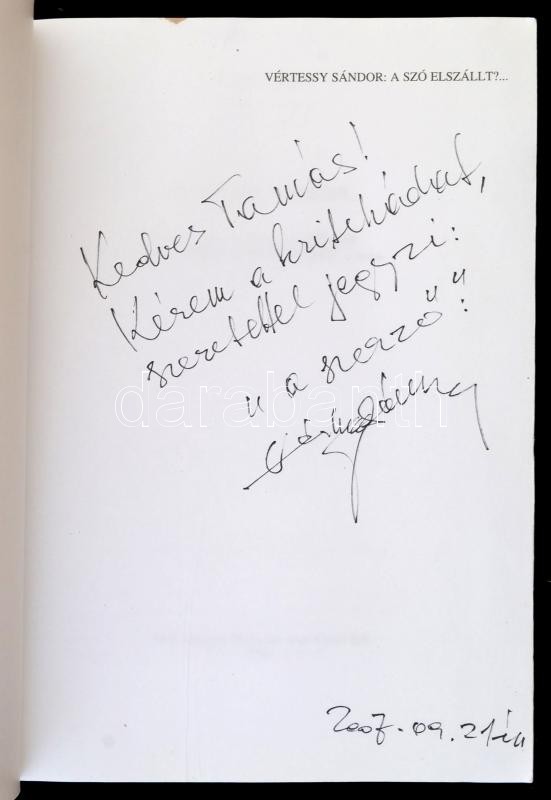 VÉRTESSY SÁNDOR: A SZÓ ELSZÁLLT?...
Kedves Tamás!
Kérem a kritikádat,
szeretettel jegyzi:
"a szerző"!
darabanth
2007.09.21-én